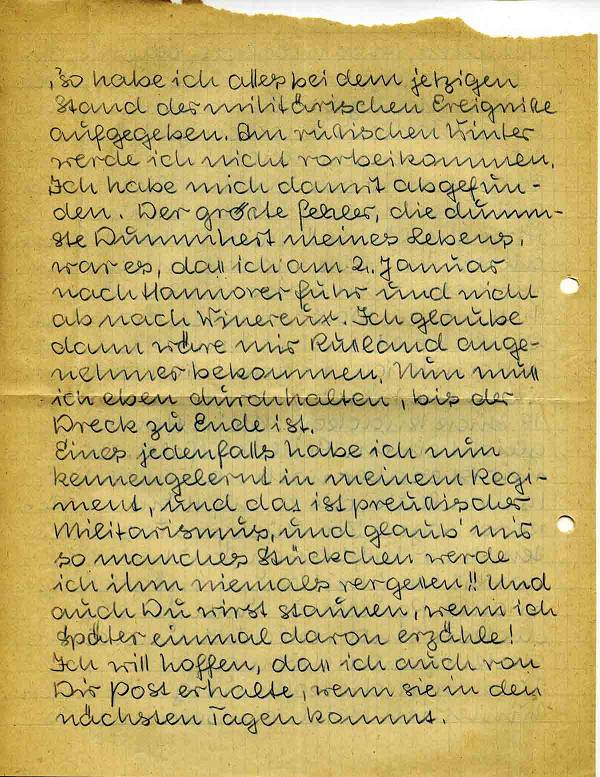 so habe ich alles bei dem jetzigen
Stand der militärischen Ereignisse
aufgegeben. Am russischen Winter
werde ich nicht vorbeikommen.
Ich habe mich damit abgefun-
den. Der grösste Fehler, die dumm-
ste Dummheit meines Lebens,
war es, dass ich am 2. Januar
nach Hannover fuhr und nicht
ab nach Wimereux. Ich glaube
dann wäre mir Russland ange-
nehmer bekommen. Nun muss
ich eben durchhalten, bis der
Dreck zu Ende ist.
Eines jedenfalls habe ich nun
kennengelernt in meinem Regi-
ment, und das ist preussischer
Militarismus, und glaub' mir
so manches Stückchen werde
ich ihm niemals vergessen!! Und
auch Du wirst staunen, wenn ich
später einmal davon erzähle!
Ich will hoffen, dass ich auch von
Dir Post erhalte, wenn sie in den
nächsten Tagen kommt.